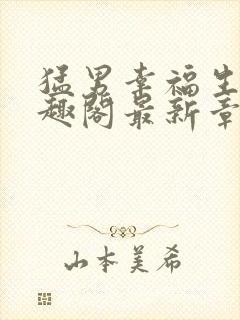 猛男幸福生
趣阁最新章
山本美希